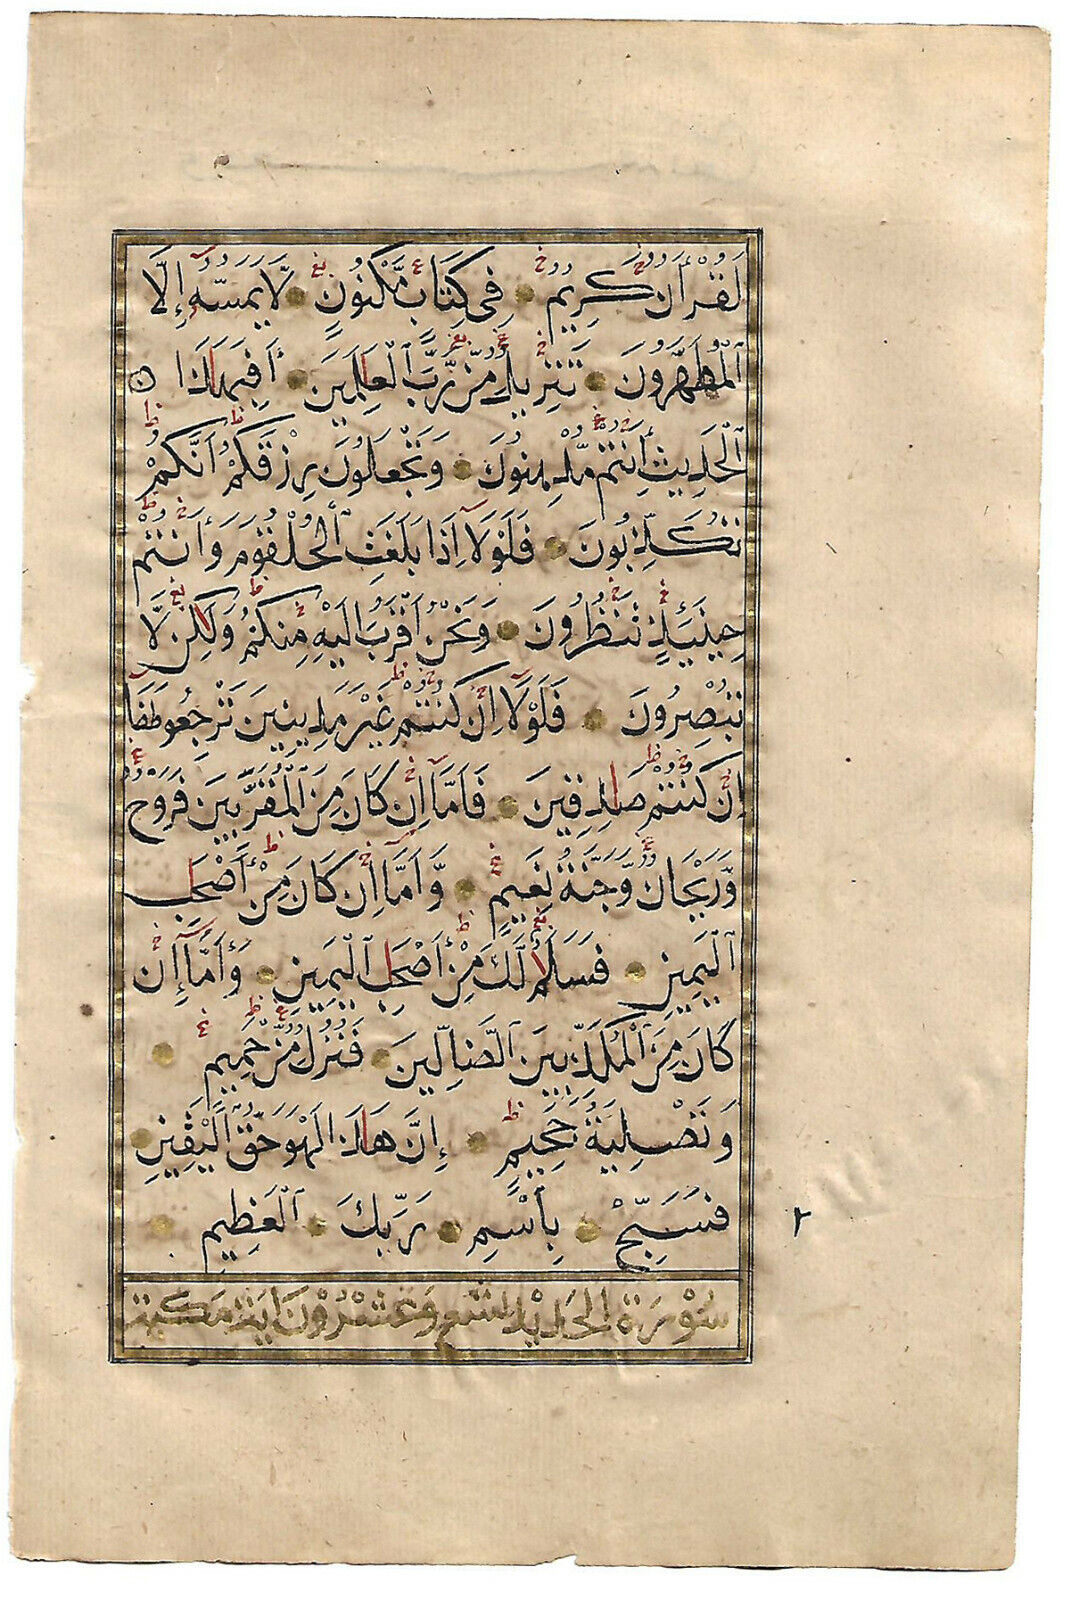 لَقُرْآنٌ كَرِيمٌ فِي كِتَابٍ مَّكْنُونٍ لَّا يَمَسُّهُ إِلَّا
الْمُطَهَّرُونَ تَنزِيلٌ مِّن رَّبِّ الْعَالَمِينَ أَفَبِهَٰذَا
الْحَدِيثِ أَنتُم مُّدْهِنُونَ وَتَجْعَلُونَ رِزْقَكُمْ أَنَّكُمْ
تُكَذِّبُونَ فَلَوْلَا إِذَا بَلَغَتِ الْحُلْقُومَ وَأَنتُمْ
حِينَئِذٍ تَنظُرُونَ وَنَحْنُ أَقْرَبُ إِلَيْهِ مِنكُمْ وَلَٰكِن لَّا
تُبْصِرُونَ فَلَوْلَا إِن كُنتُمْ غَيْرَ مَدِينِينَ تَرْجِعُونَهَا
إِن كُنتُمْ صَادِقِينَ فَأَمَّا إِن كَانَ مِنَ الْمُقَرَّبِينَ فَرَوْحٌ
وَّرَيْحَانٌ وَّجَنَّةُ نَعِيمٍ وَأَمَّا إِن كَانَ مِنْ أَصْحَابِ
الْيَمِينِ فَسَلَامٌ لَّكَ مِنْ أَصْحَابِ الْيَمِينِ وَأَمَّا إِن
كَانَ مِنَ الْمُكَذِّبِينَ الضَّالِّينَ فَنُزُلٌ مِّنْ حَمِيمٍ
وَتَصْلِيَةُ جَحِيمٍ إِنَّ هَٰذَا لَهُوَ حَقُّ الْيَقِينِ
فَسَبِّحْ بِاسْمِ رَبِّكَ الْعَظِيمِ
سُوْرَةُ الحَدِيْد تسْع وَعشْرُوْنَ ايَة مَكيّة